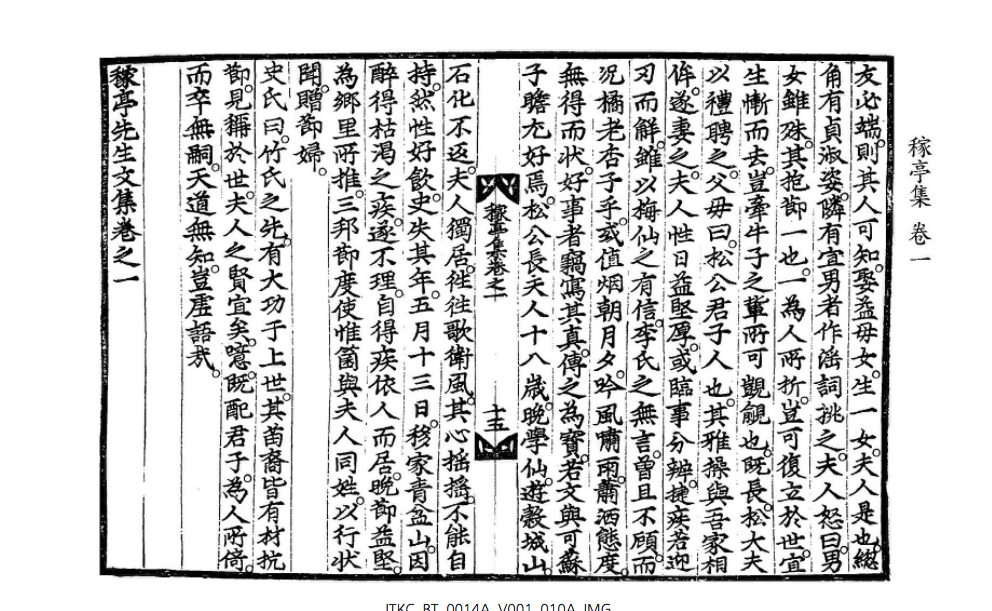 稼亭集 卷一
友必端。則其人可知。娶益母女。生一女。夫人是也。緫
角有貞淑姿。隣有宜男者作滛詞挑之。夫人怒曰。男
女雖殊。其抱節一也。一爲人所折。豈可復立於世。宜
生慚而去。豈牽牛子之輩所可覬覦也。旣長。松大夫
以禮聘之。父毋曰。松公君子人也。其雅操與吾家相
侔。遂妻之。夫人性日益堅厚。或臨事分辨。捷疾若迎
刃而解。雖以梅仙之有信。李氏之無言。曾且不顧。而
况橘老杏子乎。或值烟朝月夕。吟風嘯雨。蕭洒態度。
無得而狀。好事者竊寫其真。傳之為寳。若文與可,蘇
子瞻尤好焉。松公長夫人十八歲。晚學仙。遊穀城山。
稼亭集卷之一
十五
石化不返。夫人獨居。徃徃歌衛風。其心搖搖。不能自
持。然性好飮。史失其年。五月十三日。移家青盆山。因
醉得枯渴之疾。遂不理。自得疾依人而居。晚節益堅。
為鄉里所推。三邦節度使惟箇與夫人同姓。以行狀
聞。贈節婦。
史氏曰。竹氏之先。有大功于上世。其苗裔皆有材抗
節。見稱於世。夫人之賢宜矣。噫。旣配君子。為人所倚。
而卒無嗣。天道無知。豈虛語㦲。
稼亭先生文集卷之一
ITKC_BT_0014A_V001_010A_IMG